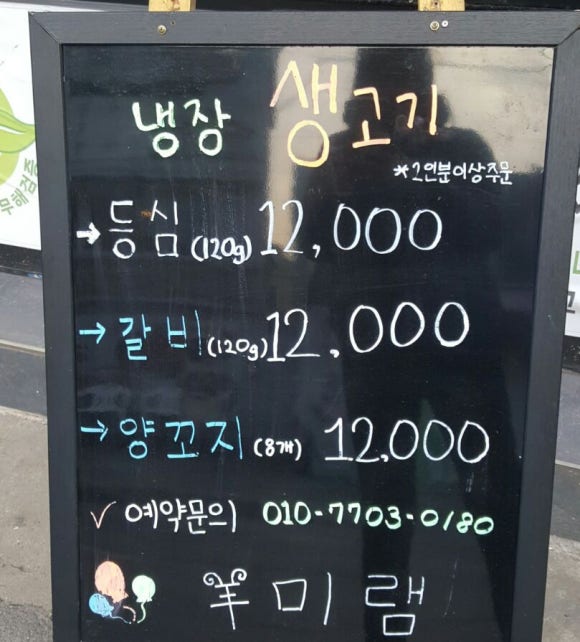 냉장 생고기
*2인분이상주문
→ 등심 (120g) 12,000
→ 갈비 (120g) 12,000
→ 양꼬치 (8개) 12,000
✓ 예약문의 010-7703-0180
羊미램
무해검증
고